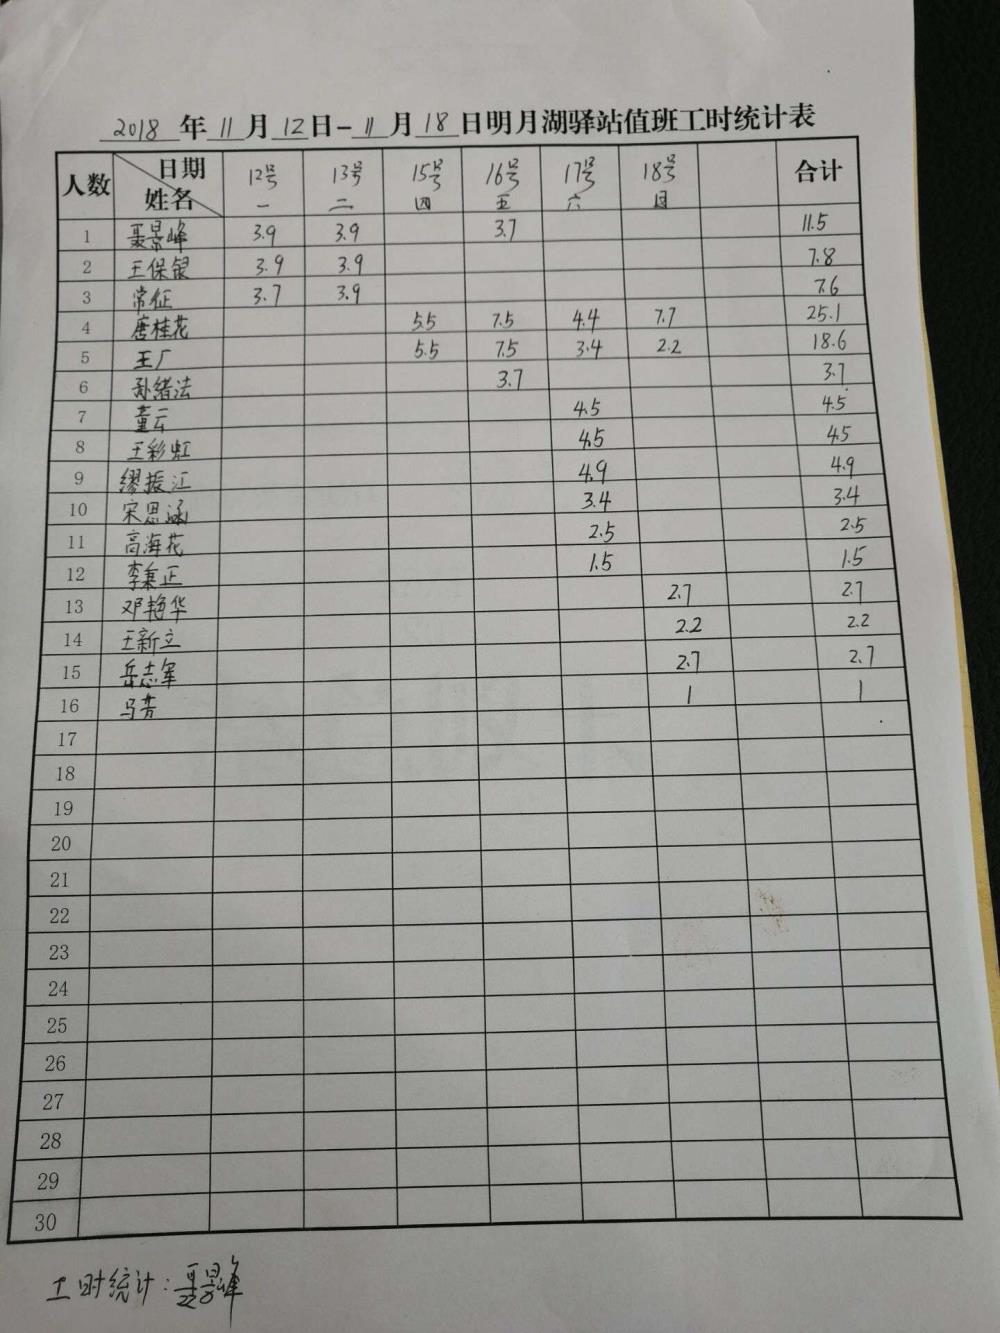 2018年11月12日-11月18日明月湖驿站值班工时统计表
人数 日期 姓名 12号 一 13号 二 15号 四 16号 五 17号 六 18号 日 合计
1 聂景峰 3.9 3.9 3.7 11.5
2 王保银 3.9 3.9 7.8
3 常征 3.7 3.9 7.6
4 唐桂花 5.5 7.5 4.4 7.7 25.1
5 王厂 5.5 7.5 3.4 2.2 18.6
6 孙绪法 3.7 3.7
7 董云 4.5 4.5
8 王彩虹 4.5 4.5
9 缪振江 4.9 4.9
10 宋思涵 3.4 3.4
11 高海花 2.5 2.5
12 李秉正 1.5 1.5
13 邓艳华 2.7 2.7
14 王新立 2.2 2.2
15 岳志军 2.7 2.7
16 马芳 1 1
17
18
19
20
21
22
23
24
25
26
27
28
29
30
工时统计:聂景峰